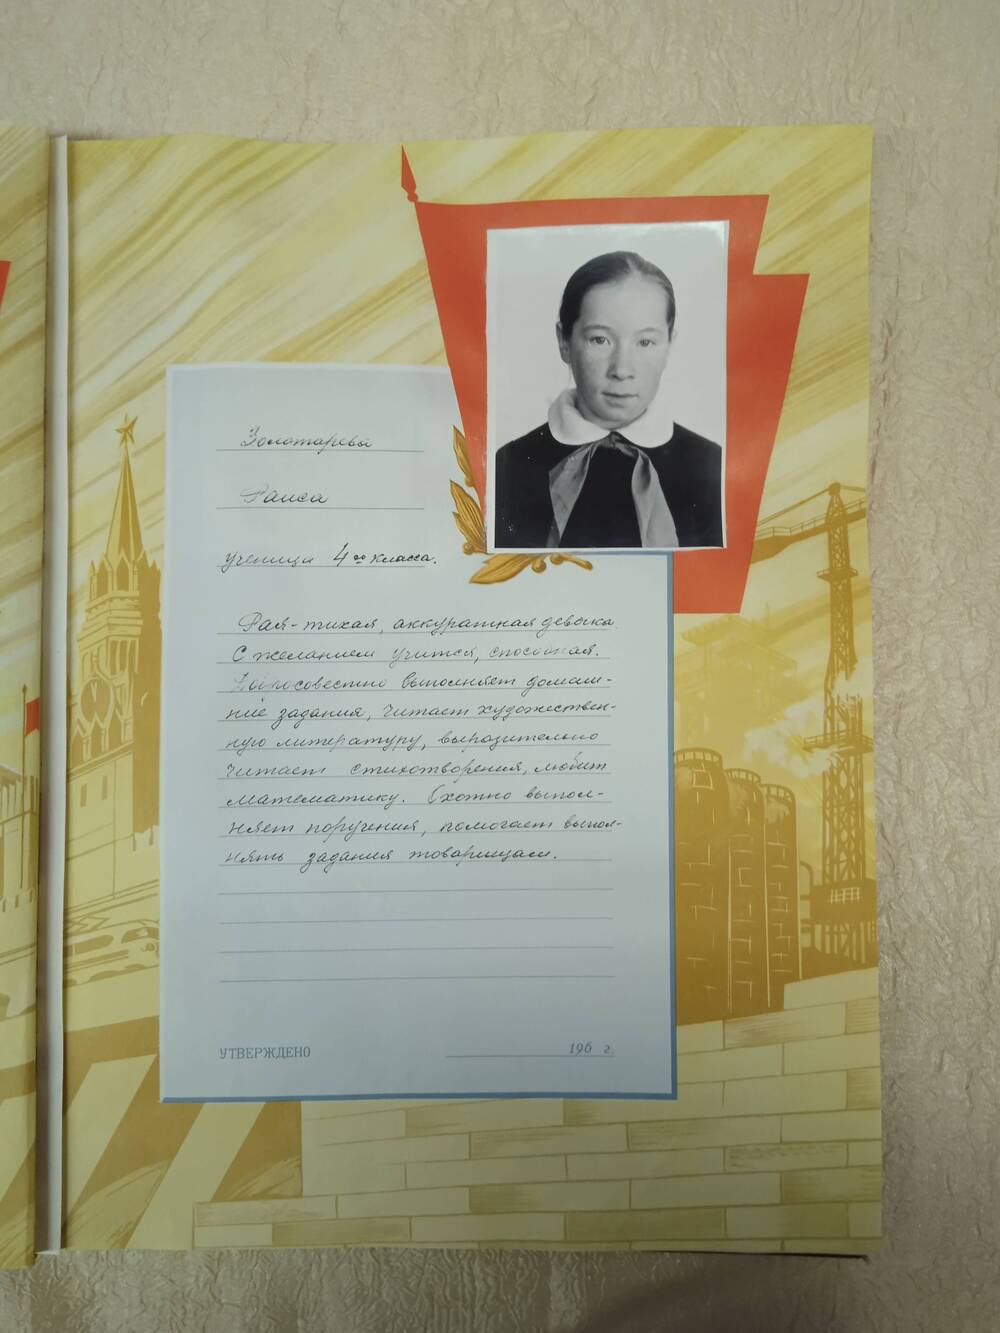 Золотарева
Раиса
ученица 4го класса.
Рая - тихая, аккуратная девочка.
С желанием учится, способная.
Добросовестно выполняет домаш-
ние задания, читает художествен-
ную литературу, выразительно
читает стихотворения, любит
математику. Охотно выпол-
няет поручения, помогает выпол-
нять задания товарищам.
УТВЕРЖДЕНО 196 г.